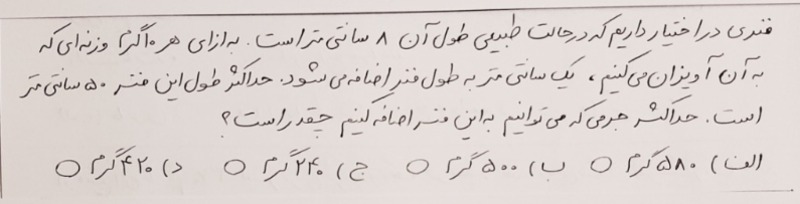 فنری در اختیار داریم که در حالت طبیعی طول آن ۸ سانتی متر است. به ازای هر ۱۰ گرم وزنه ای که
به آن آویزان می کنیم، یک سانتی متر به طول فنر اضافه می شود. حداکثر طول این فنر ۵۰ سانتی متر
است. حداکثر جرمی که می توانیم به این فنر اضافه کنیم چقدر است؟
الف) ۵۸۰ گرم ○ ب) ۵۰۰ گرم ○ ج) ۲۴۰ گرم ○ د) ۴۲۰ گرم ○